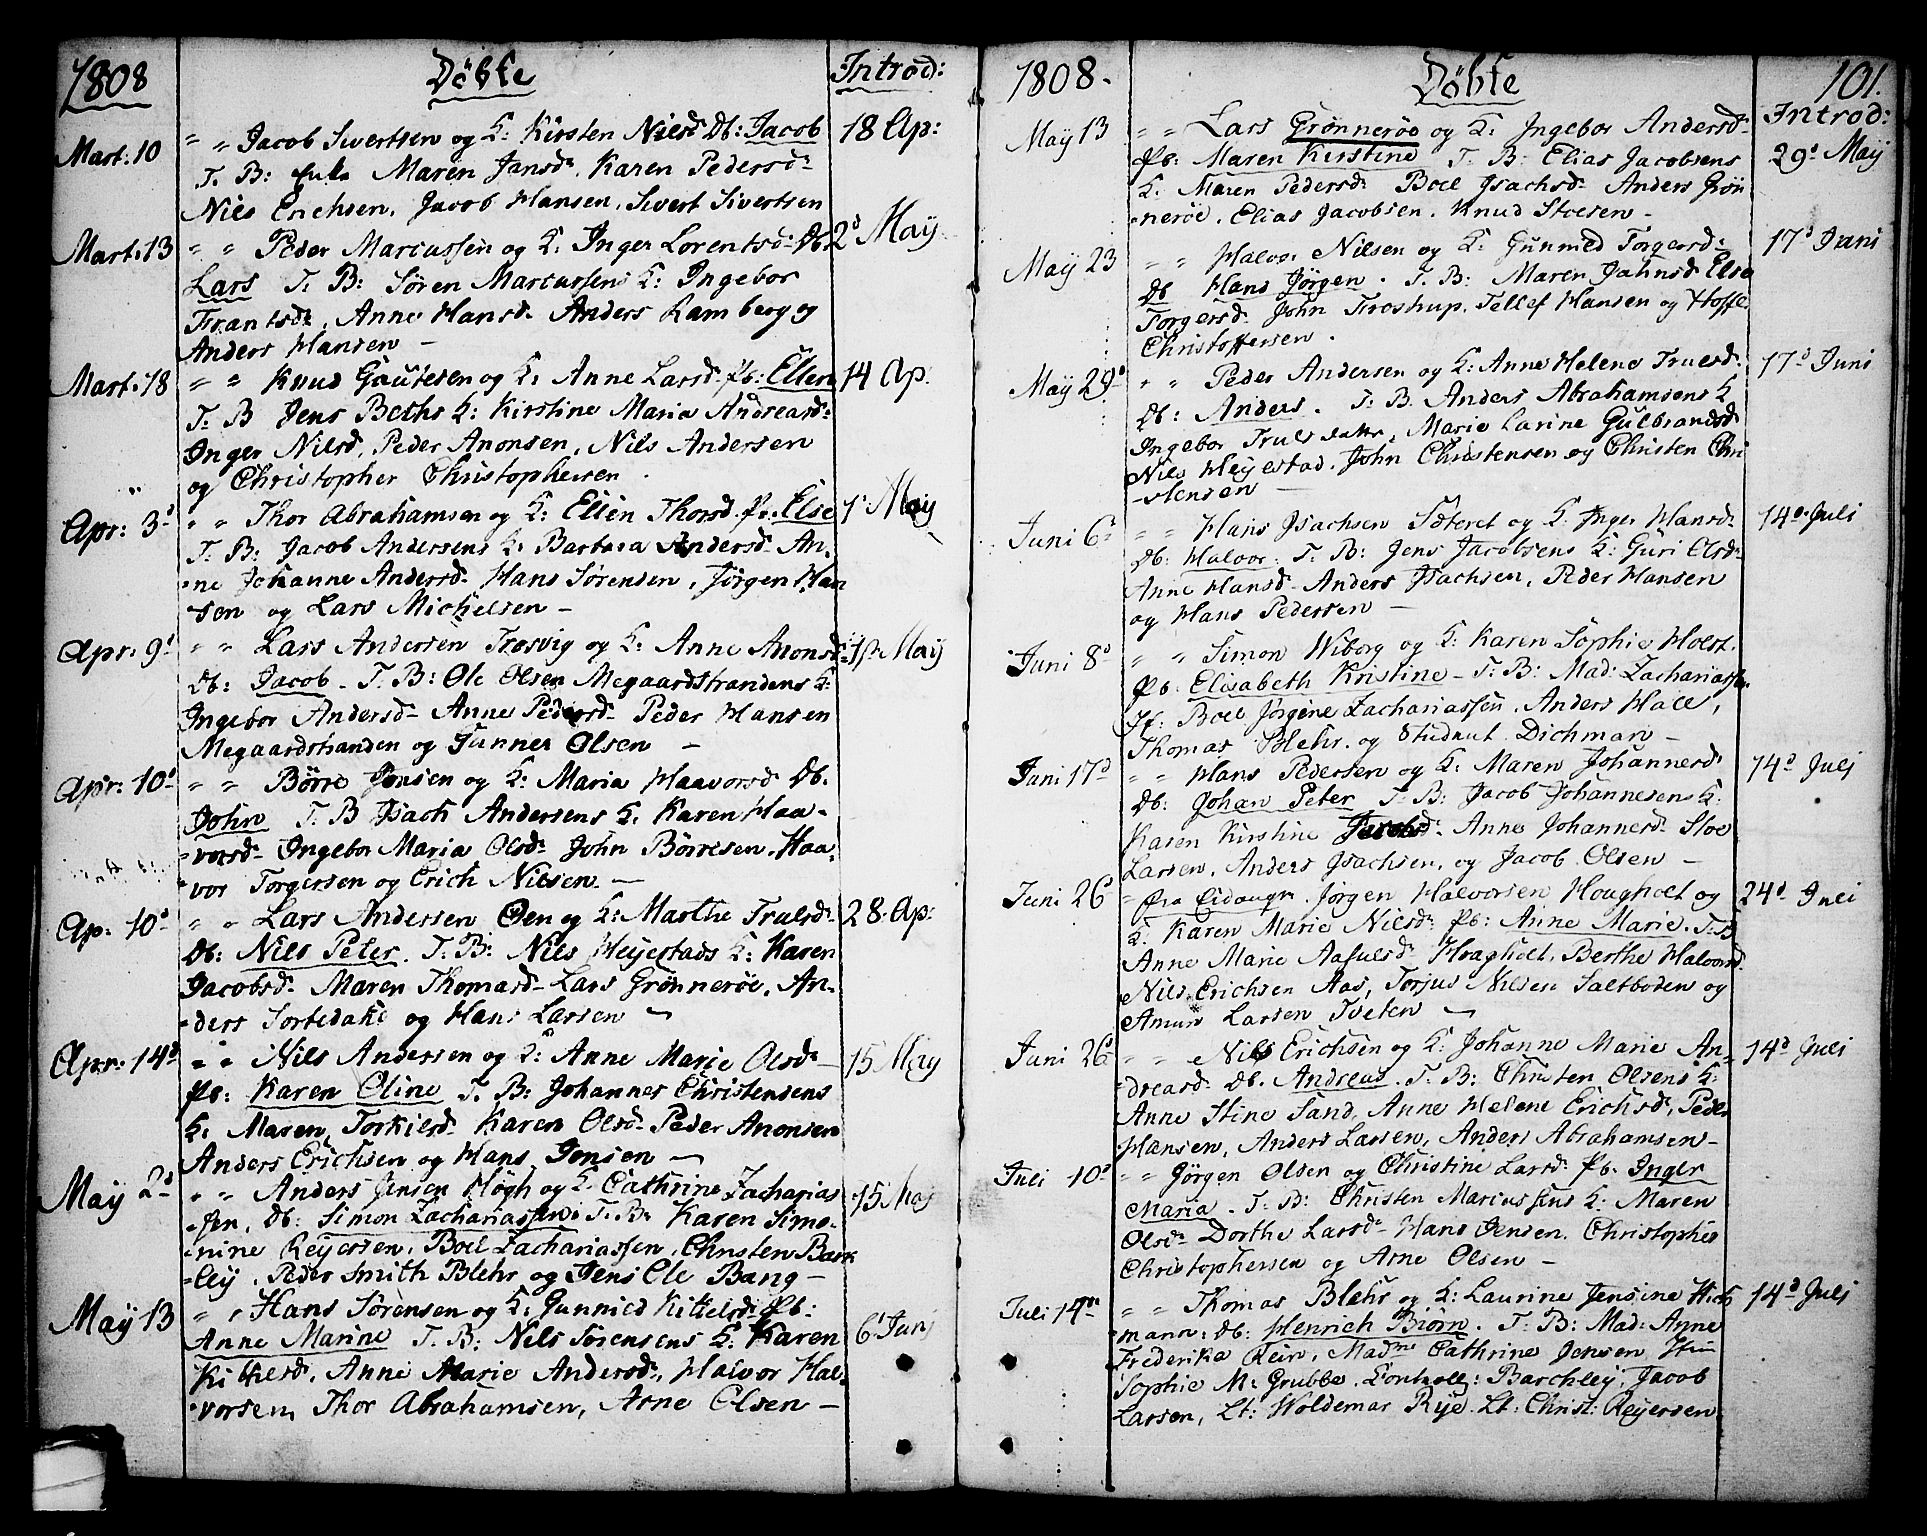 1808 Döbte Introd:
Mart: 10 " " Jacob Sivertsen og K: Kirsten Nielsd. Db: Jacob 18 Ap:
T. B: Maren Jansdr. Karen Pedersdr
Niels Erichsen, Jacob Hansen, Sivert Sivertsen
Mart: 13 " " Peder Marcussen og K: Inger Lorentsd. Db. 2d May
Lars T. B: Sören Marcussens K: Ingebor
Frantsdr, Anne Hansd. Anders Ramberg og
Anders Hansen —
Mart: 18 " " Knud Gautesen og K: Anne Larsd. Pb: Ellen 14 Ap:
T. B Jens Beths K: Kirstine Maria Andreasd:
Inger Nilsd, Peder Anonsen, Nils Andersen
og Christopher Christophersen.
Apr: 3d " " Thor Abrahamsen og K: Ellen Thorsd. Pb. Else 1' May
T. B: Jacob Andersens K: Barbara Andersd. An-
ne Johanne Andersd. Hans Sörensen, Jörgen Han
sen og Lars Michelsen —
Apr: 9d " " Lars Andersen Trosvig og K: Anne Anonsd: 1st May
Db: Jacob. T. B: Ole Olsen Megaardstrandens K:
Ingebor Andersd. Anne Pedersd. Peder Hansen
Megaardstranden og Gunner Olsen —
Apr: 10d " " Börre Jensen og K: Maria Haavorsd. Db.
John T. B Isach Andersens K: Karen Haa-
vorsd. Ingebor Maria Olsd. John Börresen. Haa-
vor Torgersen og Erich Nielsen. —
Ap: 10d " " Lars Andersen Oen og K: Marthe Trulsd. 28. Ap:
Db: Nils Peter. T. B: Nils Heyestads K: Karen
Jacobsd. Maren Thomasd. Lars Grönneröe, An-
ders Sortedahl og Hans Larsen —
Apr: 14d " " Nils Andersen og K: Anne Marie Olsd. 15 May
Pb: Karen Oline T. B: Johannes Christensens
K: Maren Torkilsd. Karen Olsd. Peder Anonsen
Anders Erichsen og Hans Jensen —
May 2d " " Anders Jensen Högh og K. Cathrine Zacharias 15 May
sen, Db: Simon Zachariassen. T. B: Karen Simo-
nine Reyersen, Boel Zachariassen, Christen Bark
ley, Peder Smith Blehr og Jens Ole Bang —
May 13 " " Hans Sörensen og K: Gunnild Kittelsd. Pb: 6' Junj
Anne Marine T. B: Nils Sörensens K: Karen
Kittelsd, Anne Marie Andersd, Halvor Hal-
vorsen, Thor Abrahamsen, Arne Olsen —
1808. Döbte 101.
Introd:
May 13 " " Lars Grönneröe og K: Ingebor Andersd. 29' May
Pb: Maren Kirstine T. B: Elias Jacobsens
K. Maren Pedersd. Boel Isachsd. Anders Grön
neröe. Elias Jacobsen. Knud Stoesen —
May 23 " " Halvor Nilsen og K: Gunnild Torgersd: 17d Juni
Db Hans Jörgen. T. B: Maren Jahnsd Else
Torgersd. John Trostrup. Tellef Hansen og Hoffe
Christoffersen.
May 29d " " Peder Andersen og K: Anne Helene Trulsd. 17d Juni
Db: Anders. T. B. Anders Abrahamsens K
Ingebor Truls datter, Marie Larine Gulbrandsd
Nils Heyestad, John Christensen og Christen Chri
stensen —
Juni 6d " " Hans Isachsen Sæteret og K: Inger Hansd. 14de Juli
Db: Halvor. T. B: Jens Jacobsens K: Guri Olsd.
Anne Hansd. Anders Isachsen, Peder Hansen
og Hans Pedersen —
Juni 8d " " Simon Wiborg og K: Karen Sophie Holst.
Pb. Elisabeth Kristine — T. B: Mad: Zachariassen.
Jf: Boel Jörgine Zachariassen. Anders Hall,
Thomas Blehr. og Studnut. Dichman —
Juni 17d " " Hans Pedersen og K: Maren Johannesd. 14d Juli
Db: Johan Peter T. B: Jacob Johannesens K:
Karen Kirstine Jacobsd. Anne Johannesd. Stoe
Larsen, Anders Isachsen, og Jacob Olsen —
Juni 26d " fra Eidangr. Jörgen Halvorsen Hougholt og 24d Juli
K. Karen Marie Nilsd. Pb: Anne Marie. T. B
Anne Marie Aasulsd. Hragholt, Berthe Halvorsd.
Nils Erichsen Aas, Torjus Nilsen Saltboden og
Amun Larsen Tveten —
Juni 26d " " Nils Erichsen og K: Johanne Marie An- 14d Juli
dreasd. Db. Andreas. T. B: Christen Olsens K:
Anne Stine Sand, Anne Helene Erichsd, Peder
Hansen, Anders Larsen, Anders Abrahamsen —
Juli 10d " " Jörgen Olsen og Christine Larsd. Pb. Inger
Maria. T. B: Christen Marcussens K: Maren
Olsd. Dorthe Larsd. Hans Jensen. Christopher
Christophersen og Arne Olsen —
Juli 14n " " Thomas Blehr og K: Laurine Jensine Hich 14d Juli
mann: Db: Henrich Biörn. T. B: Mad: Anne
Frederika Rein, Madme Cathrine Jensen,
Sophie M: Grubbe. Controll: Barchley, Jacob
Larsen, Lt: Woldemar Rye. Lt: Christ: Reyersen